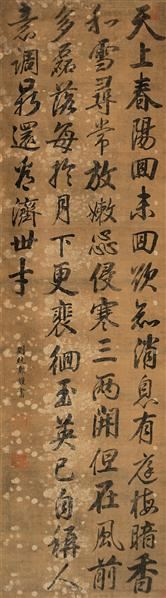 天上春陽回未回欲知消息有庭楳暗香
和雪尋常放嫩蕊侵寒三两開但在風前
多磊落每於月下更裴徊玉英已自人
意調鼎還看濟世才